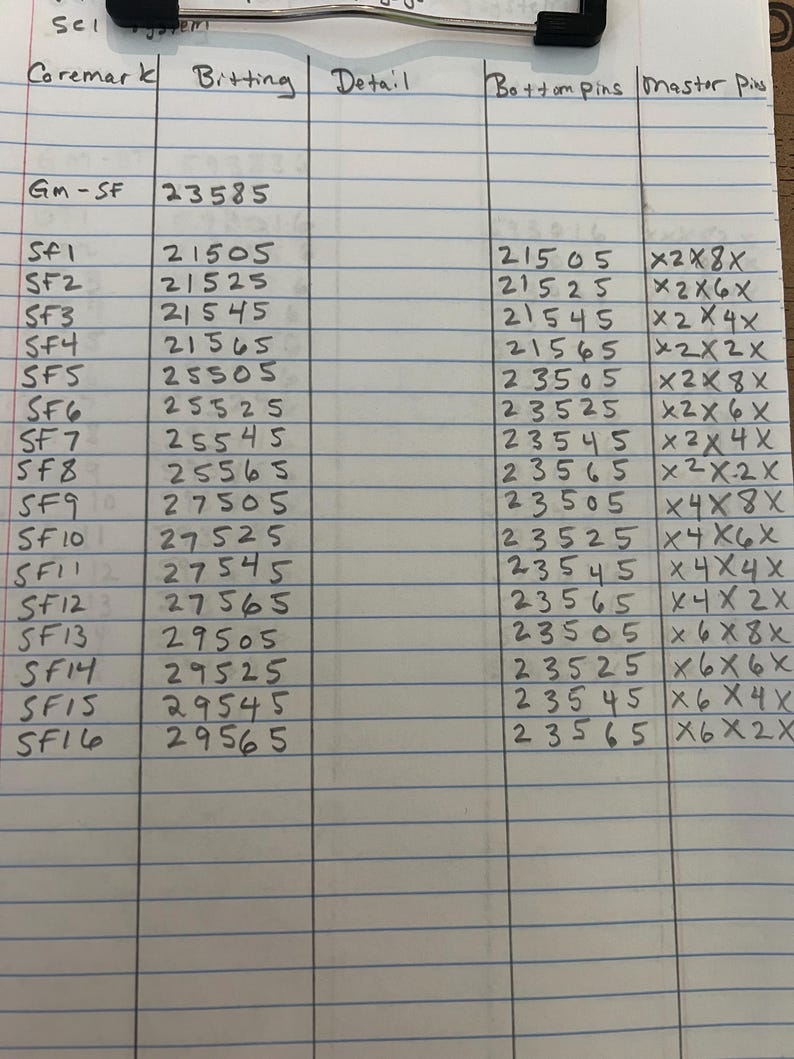 SC1 System
Coremark Bitting Detail Bottom pins Master Pins
Gm-SF 23585
SF1 21505 21505 x2x8x
SF2 21525 21525 x2x6x
SF3 21545 21545 x2x4x
SF4 21565 21565 x2x2x
SF5 25505 23505 x2x8x
SF6 25525 23525 x2x6x
SF7 25545 23545 x2x4x
SF8 25565 23565 x2x2x
SF9 27505 23505 x4x8x
SF10 27525 23525 x4x6x
SF11 27545 23545 x4x4x
SF12 27565 23565 x4x2x
SF13 29505 23505 x6x8x
SF14 29525 23525 x6x6x
SF15 29545 23545 x6x4x
SF16 29565 23565 x6x2x